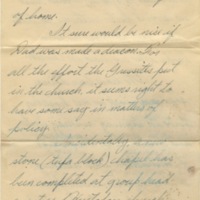 of home.
It sure would be nice if
Dad was made a deacon. It's
all the effort the Gressitts put
in the church, it seems right to
have some say in matters of
policy.
Incidentally, a new
stone (tufa block) chapel has
been completed at group head